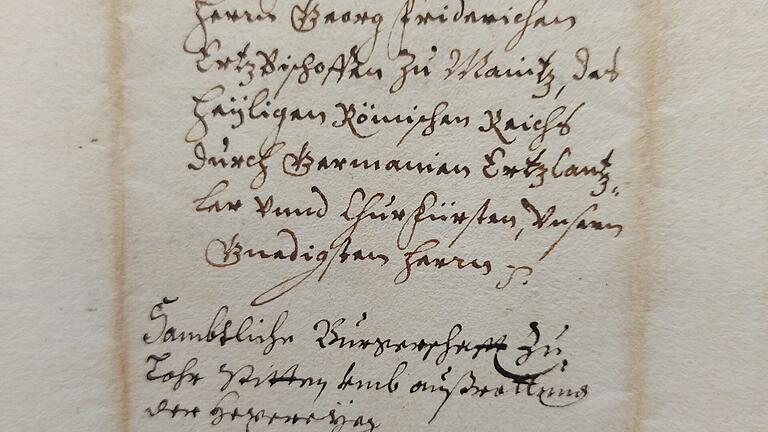 Herrn Georg Friderichen
ErtzBischoffen zu Maintz, des
Heÿligen Römischen Reichs
durch Germanien Ertz Cantz„
ler vnnd Churfürsten, Vnserm
Gnedigsten Herrn
Sambtliche Burgerschafft Zu
Lohr bitten umb außrottung
der Hexereÿen